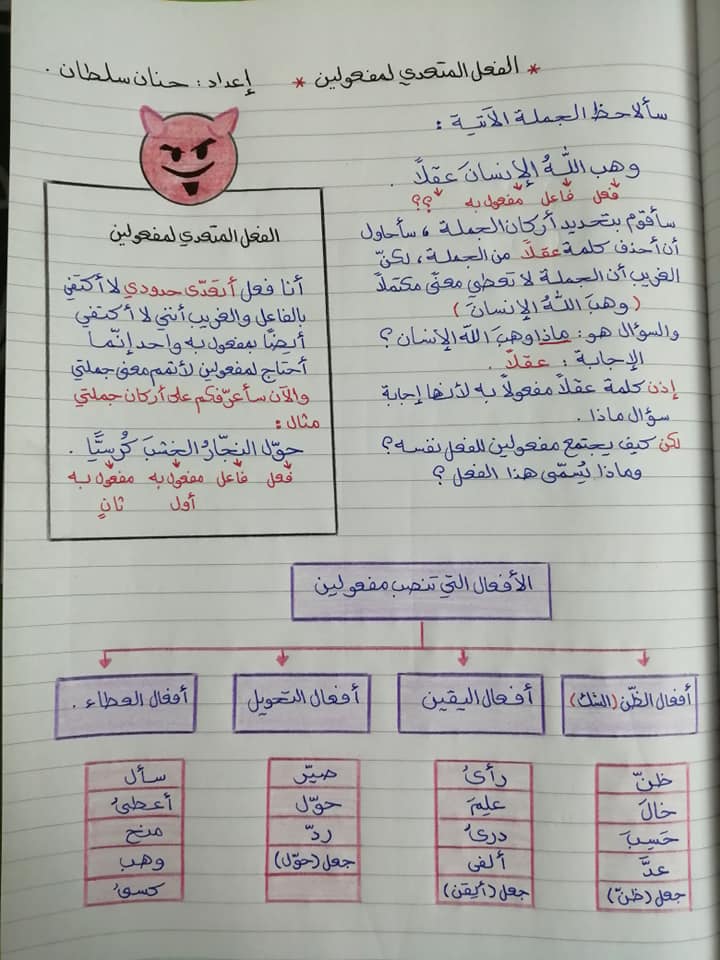 * الفعل المتعدي لمفعولين * إعداد: حنان سلطان.
سألاحظ الجملة الآتية:
وهب اللهُ الإنسانَ عقلاً.
فعل فاعل مفعول به ؟؟
سأقوم بتحديد أركان الجملة، سأحاول
أن أحذف كلمة عقلاً من الجملة، لكنّ
الغريب أن الجملة لا تعطي معنًى مكتملاً
(وهبَ اللهُ الإنسانَ)
والسؤال هو: ماذا وهبَ الله الإنسان؟
الإجابة: عقلاً.
إذن كلمة عقلاً مفعولاً به لأنها إجابة
سؤال ماذا.
لكن كيف يجتمع مفعولين للفعل نفسه؟
وماذا يُسمّى هذا الفعل؟
الفعل المتعدي لمفعولين
أنا فعل أتعدّى حدودي لا أكتفي
بالفاعل والغريب أنني لا أكتفي
أيضًا بمفعول به واحد إنّما
أحتاج لمفعولين لأتمم معنى جملتي
والآن سأعرّفكم على أركان جملتي
مثال:
حوّل النجّارُ الخشبَ كُرسيًّا.
فعل فاعل مفعول به مفعول به
أول ثانٍ
الأفعال التي تنصب مفعولين
أفعال الظّن (الشك) أفعال اليقين أفعال التحويل أفعال العطاء.
ظنّ رأى صيّر سأل
خالَ علِمَ حوّل أعطى
حَسِبَ درى ردّ منح
عدَّ ألفى جعل (حوّل) وهب
جعل (ظنّ) جعل (أيقن) كسى